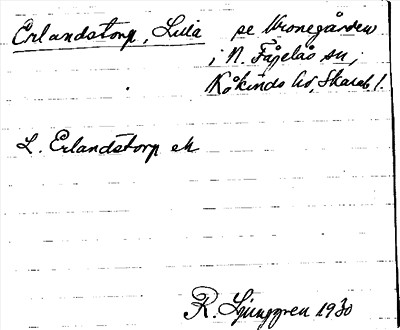 Erlandstorp, Lilla se Kronegården
i N. Fågelås sn,
Kåkinds hd, Skarab. l.
L. Erlandstorp eh
R. Ljunggren 1930